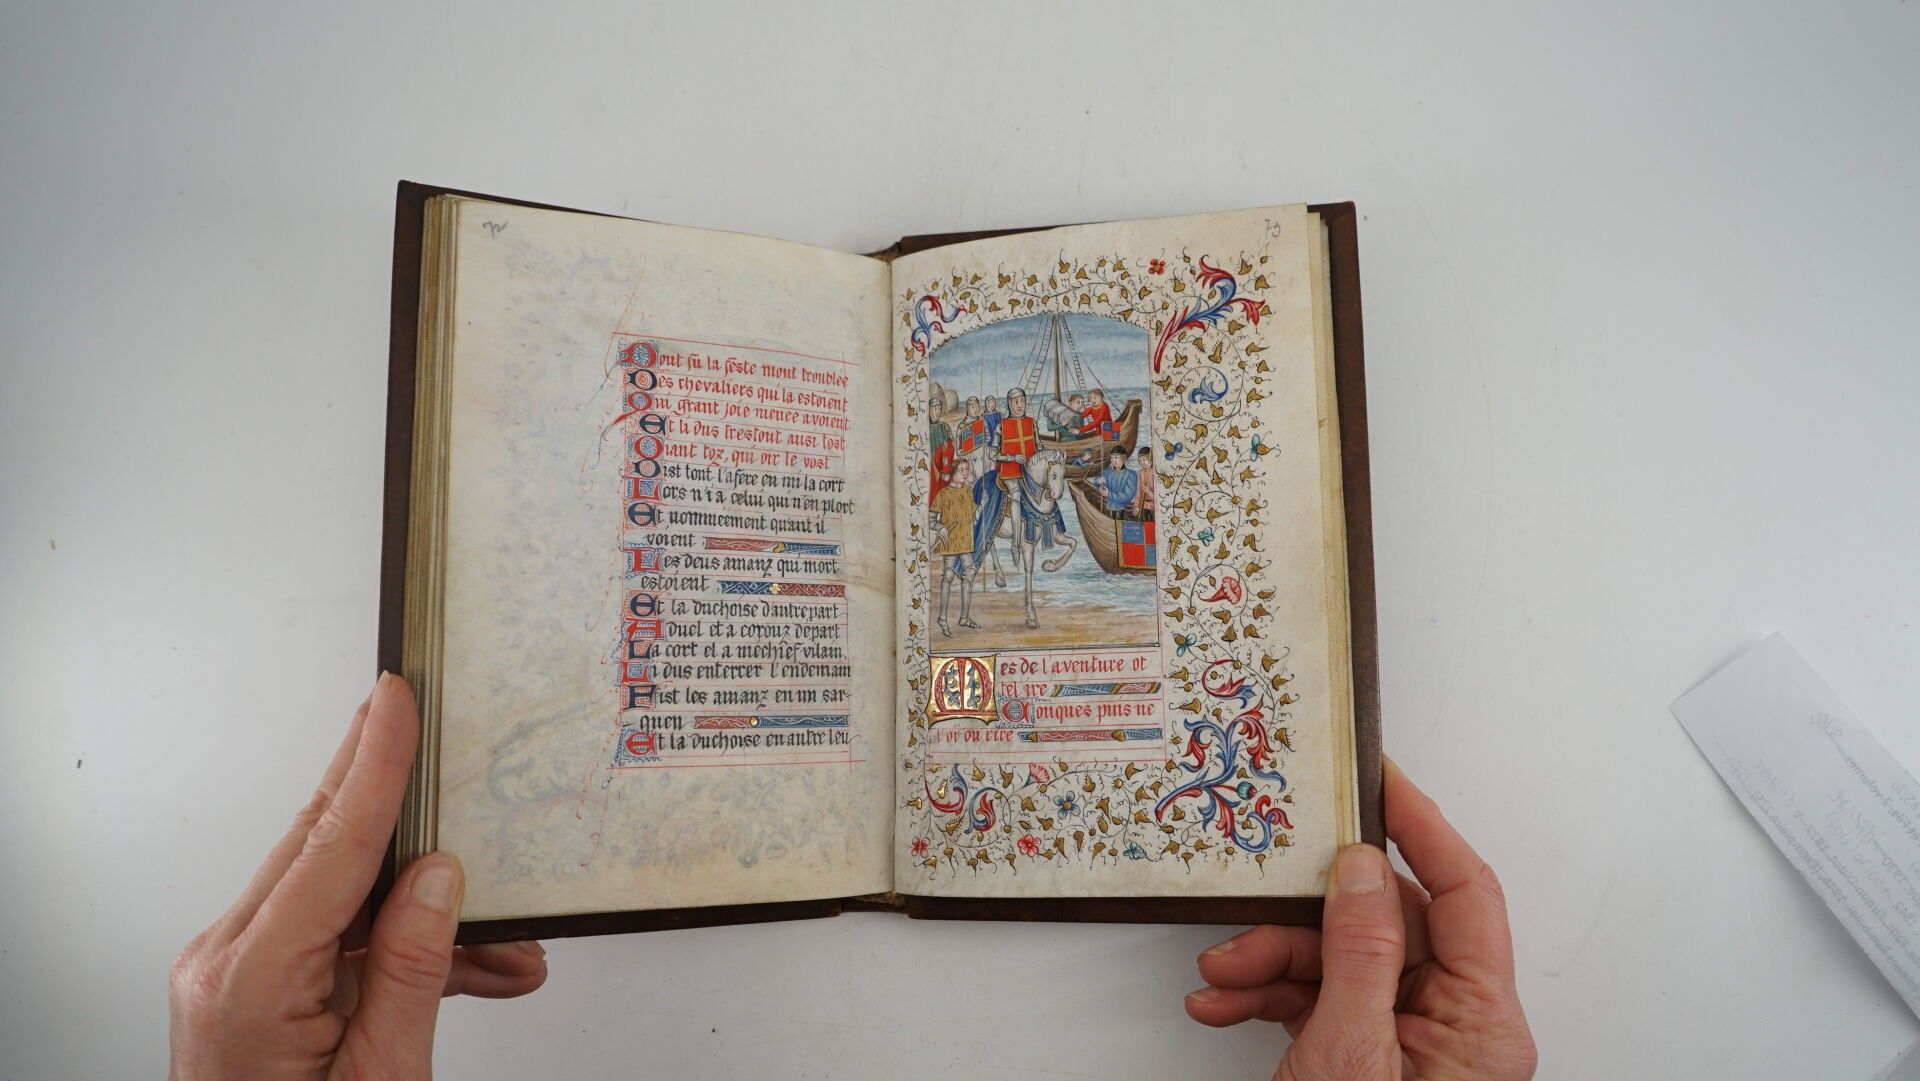 72
Dout fu la feste mout troublee
Des chevaliers qui la estoient
Qui grant joie menee avoient
Et li dus trestout ausi tost
Oiant toz, qui oir le vost
Dist tout l'afere en mi la cort
Lors n i a celui qui n'en plort
Et nommeement quant il
voient
Les deus amanz qui mort
estoient
Et la duchoise d'autre part
A duel et a corouz depart
La cort et a mechief vilain.
Li dus enterrer l'endemain
Fist les amanz en un sar-
queu
Et la duchoise en autre leu
73
Mes de l'aventure ot
tel ire
Conques puis ne
l'oi on rire